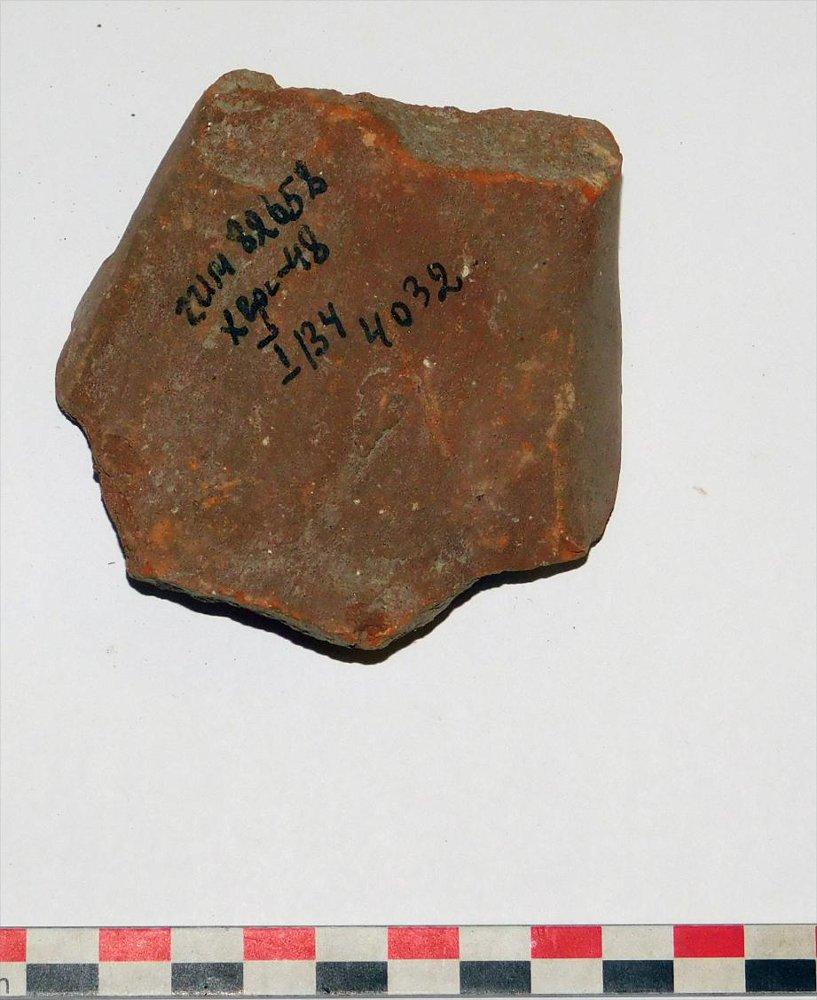 ГИМ 82658
Хер-48
I 134 4032